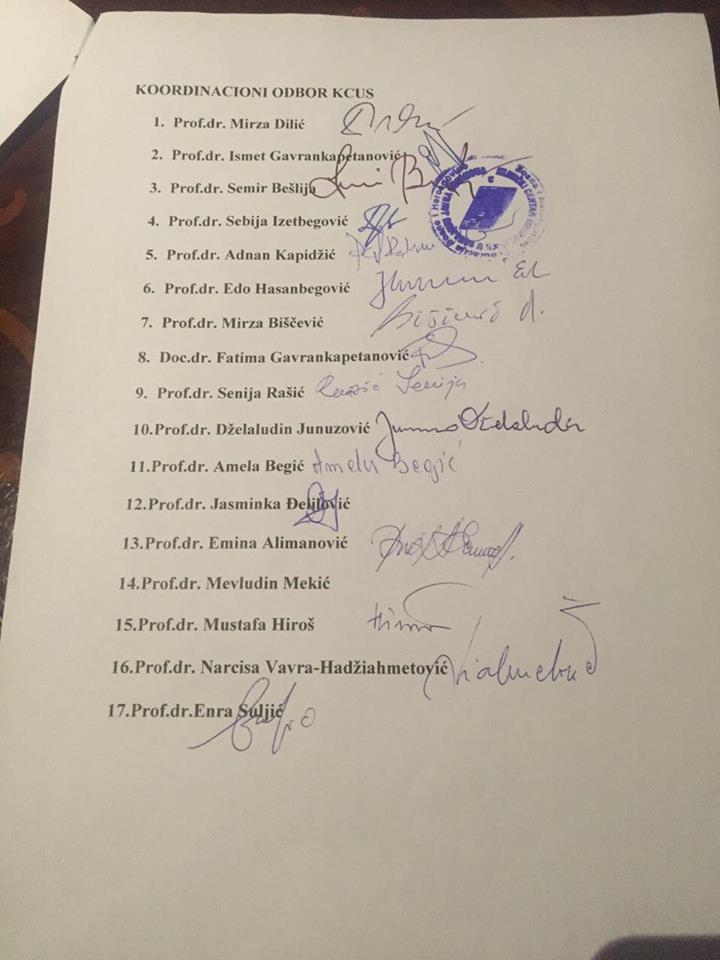 KOORDINACIONI ODBOR KCUS
1. Prof.dr. Mirza Dilić
2. Prof.dr. Ismet Gavrankapetanović
3. Prof.dr. Semir Bešlija
4. Prof.dr. Sebija Izetbegović
5. Prof.dr. Adnan Kapidžić
6. Prof.dr. Edo Hasanbegović
7. Prof.dr. Mirza Biščević
8. Doc.dr. Fatima Gavrankapetanović
9. Prof.dr. Senija Rašić Rašić Senija
10.Prof.dr. Dželaludin Junuzović
11.Prof.dr. Amela Begić Amela Begić
12.Prof.dr. Jasminka Đelilović
13.Prof.dr. Emina Alimanović
14.Prof.dr. Mevludin Mekić
15.Prof.dr. Mustafa Hiroš
16.Prof.dr. Narcisa Vavra-Hadžiahmetović
17.Prof.dr.Enra Suljić